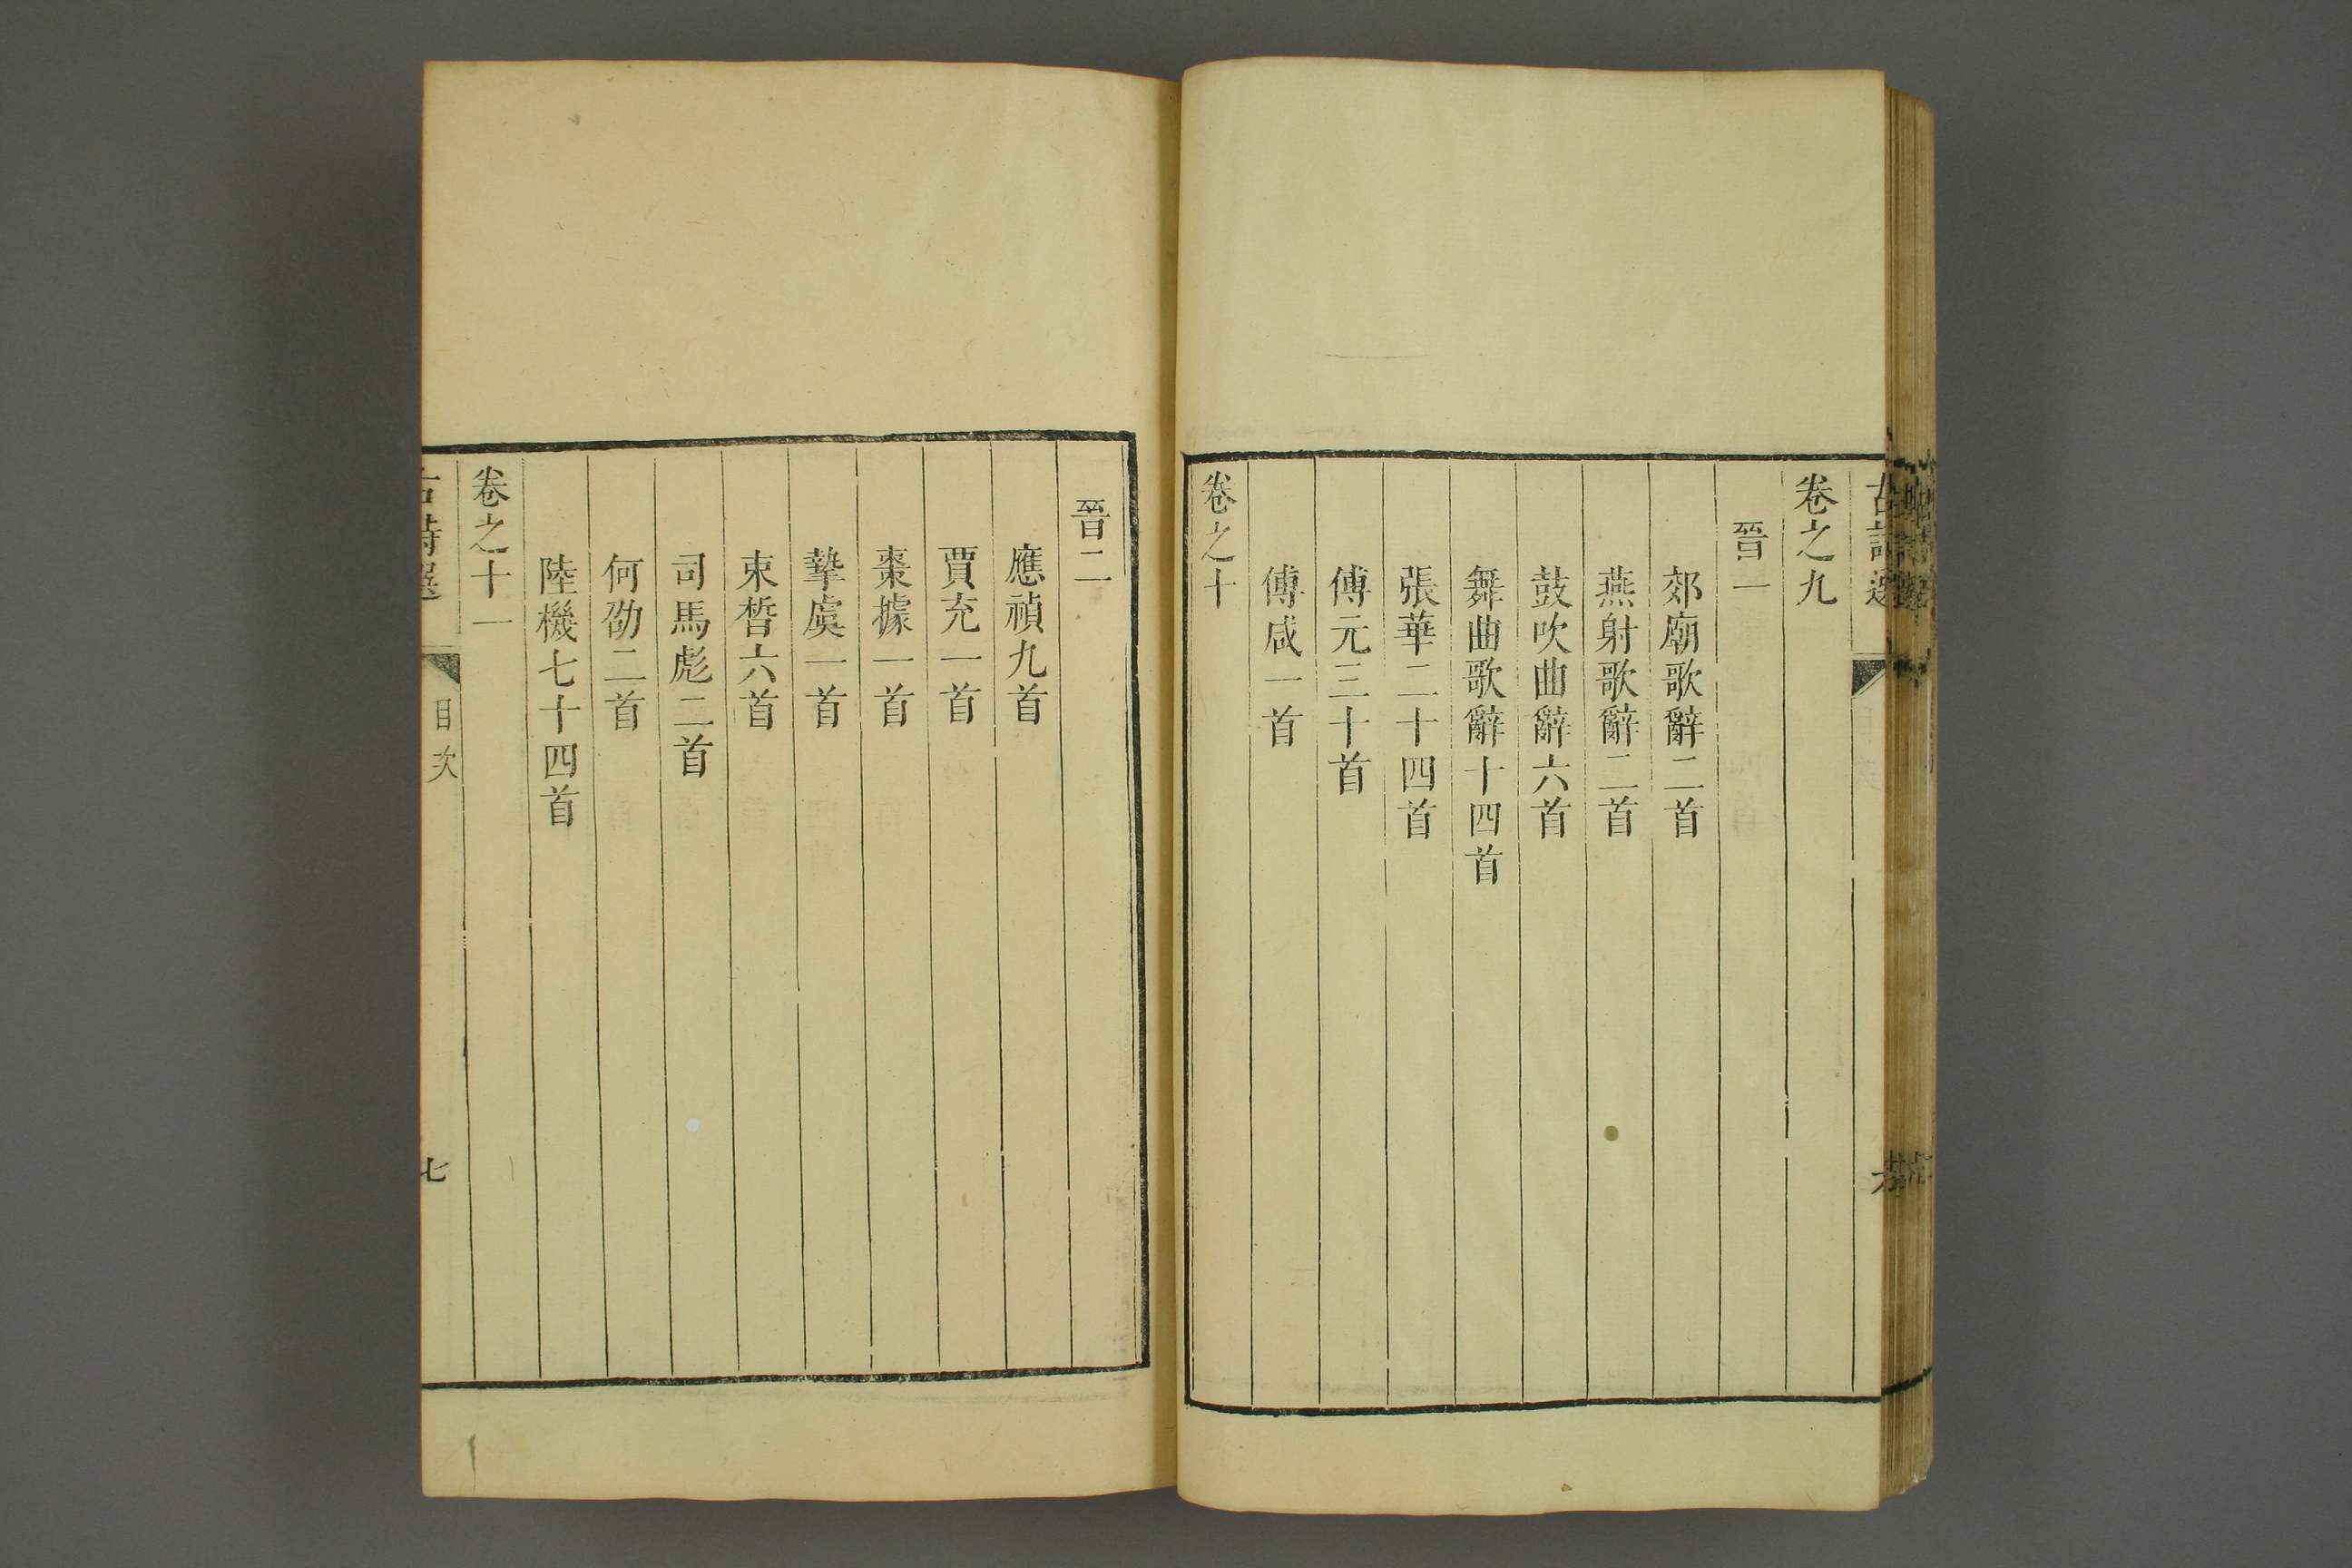 卷之九
晉一
郊廟歌辭二首
燕射歌辭二首
鼓吹曲辭六首
舞曲歌辭十四首
張華二十四首
傅元三十首
傅咸一首
卷之十
晉二
應禎九首
賈充一首
棗據一首
摯虞一首
束晳六首
司馬彪二首
何劭二首
陸機七十四首
卷之十一
古詩選
目次
七